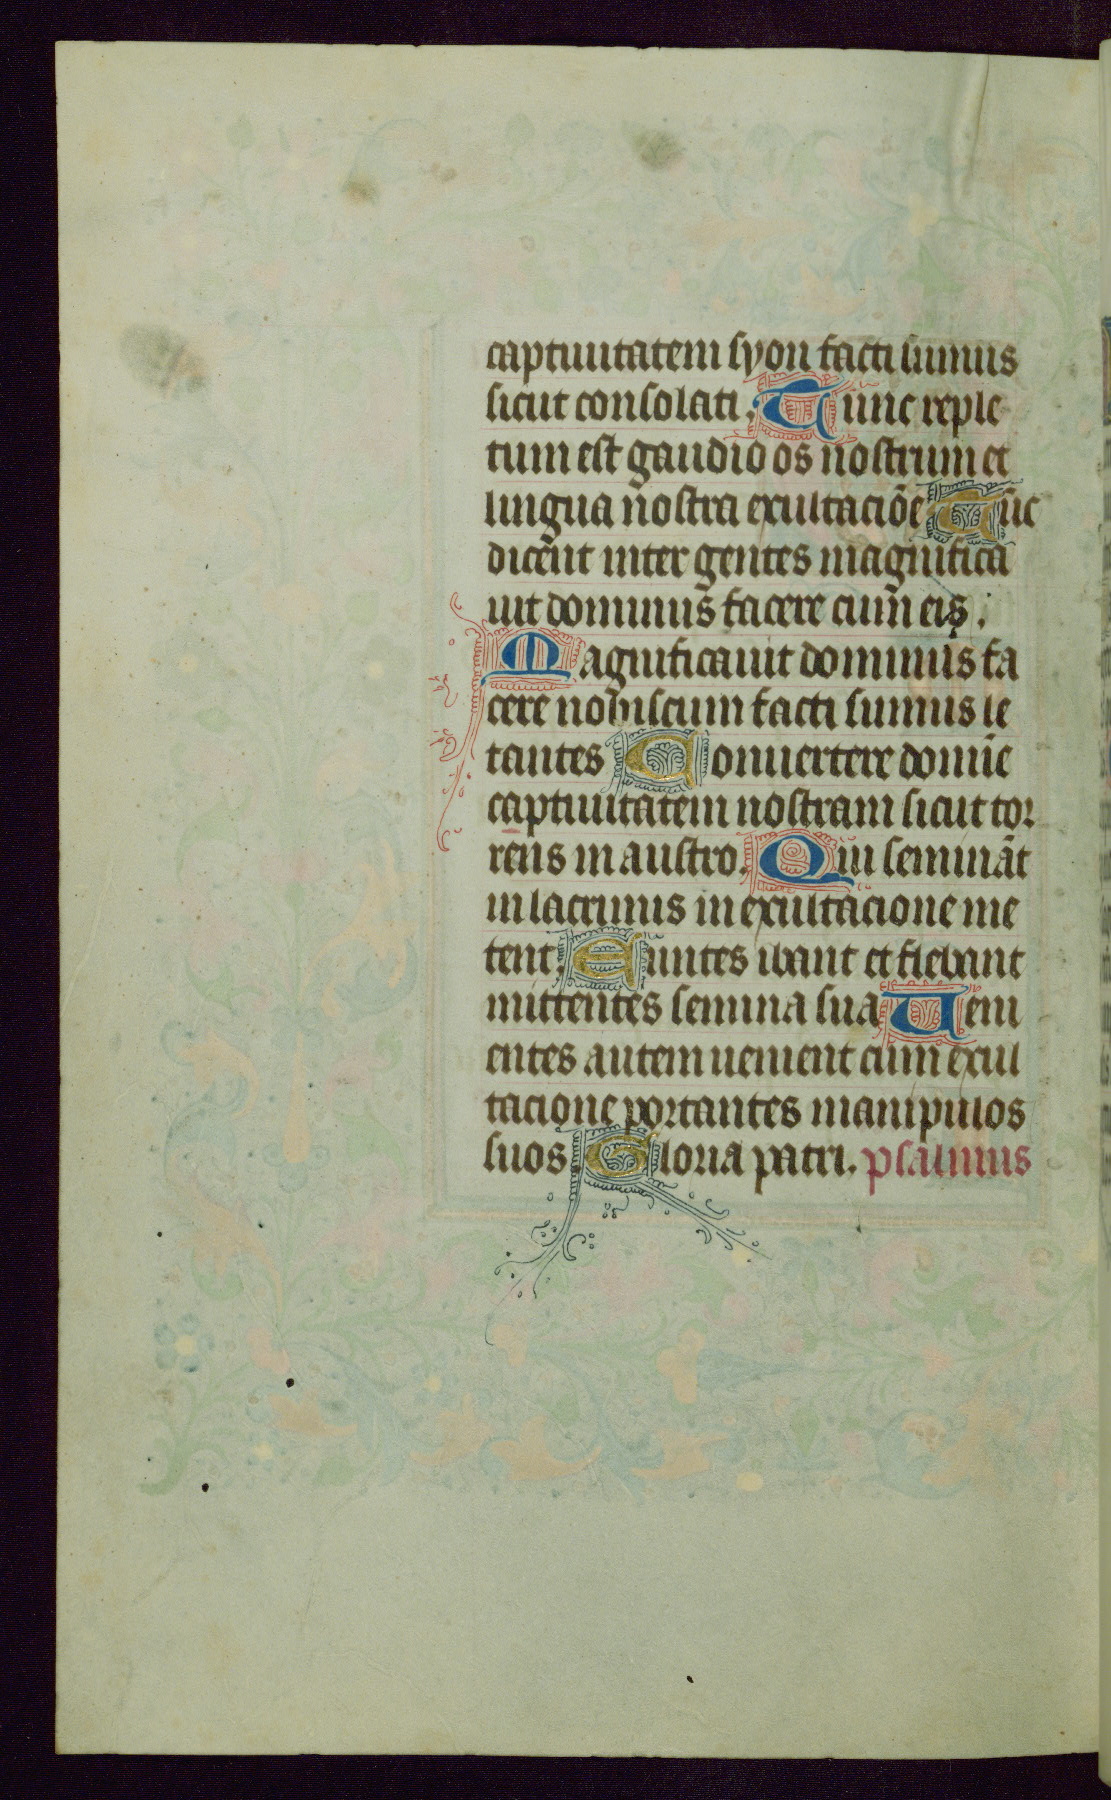 captiuitatem syon facti sumus
sicut consolati. Tunc reple
tum est gaudio os nostrum et
lingua nostra exultaciõe Tũc
dicẽnt inter gentes magnifica
uit dominus facere cum eis.
Magnificauit dominus fa
cere nobiscum facti sumus le
tantes Conuertere domĩe
captiuitatem nostram sicut tor
rens in austro. Qui seminãt
in lacrimis in exultacione me
tent. Euntes ibant et flebant
mittentes semina sua Ueni
entes autem uenient cum exul
tacione portantes manipulos
suos. Gloria patri. psalmus